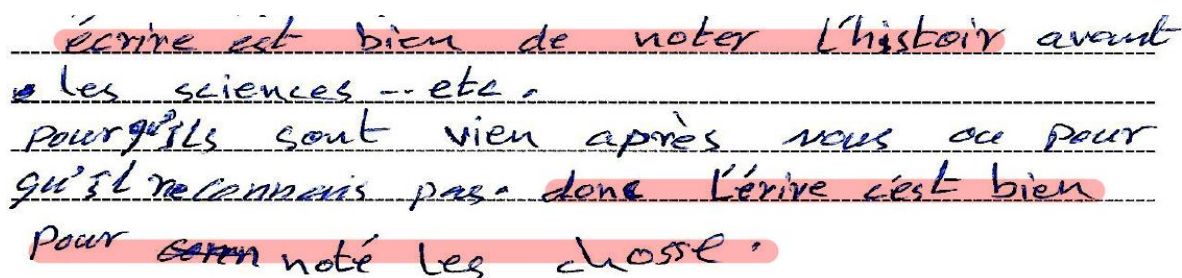 écrire est bien de noter l'histoir avant
les sciences -- etc.
pour qu'ils sont vien après nous ou pour
qu'il reconnais pas. donc l'érire c'est bien
pour noté les chosse.